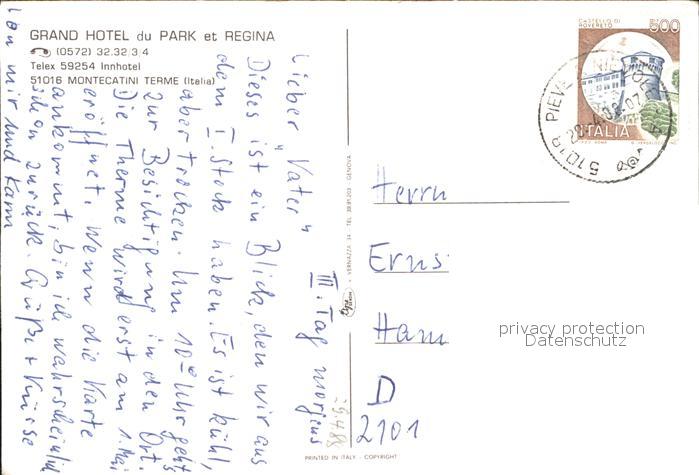 GRAND HOTEL du PARK et REGINA
(0572) 32.32.3 4
Telex 59254 Innhotel
51016 MONTECATINI TERME (Italia)
III. Tag morgens
29.4.88
Lieber "Vater"
Dieses ist ein Blick, den wir aus
dem I. Stock haben. Es ist kühl,
aber trocken. Um 10°° Uhr geht's
zur Besichtigung in den Ort.
Die Therme wird erst am 1. Mai
eröffnet. Wenn die Karte
ankommt, bin ich wahrscheinlich
schon zurück. Grüße + Küsse
von mir und Karin
VERNAZZA 34 - TEL. 39.91.203 - GENOVA
PRINTED IN ITALY - COPYRIGHT
CASTELLO DI
ROVERETO
500
ITALIA
51018 PIEVE A NIEVOLE
Herrn
Erns
Ham
D
2101
privacy protection
Datenschutz